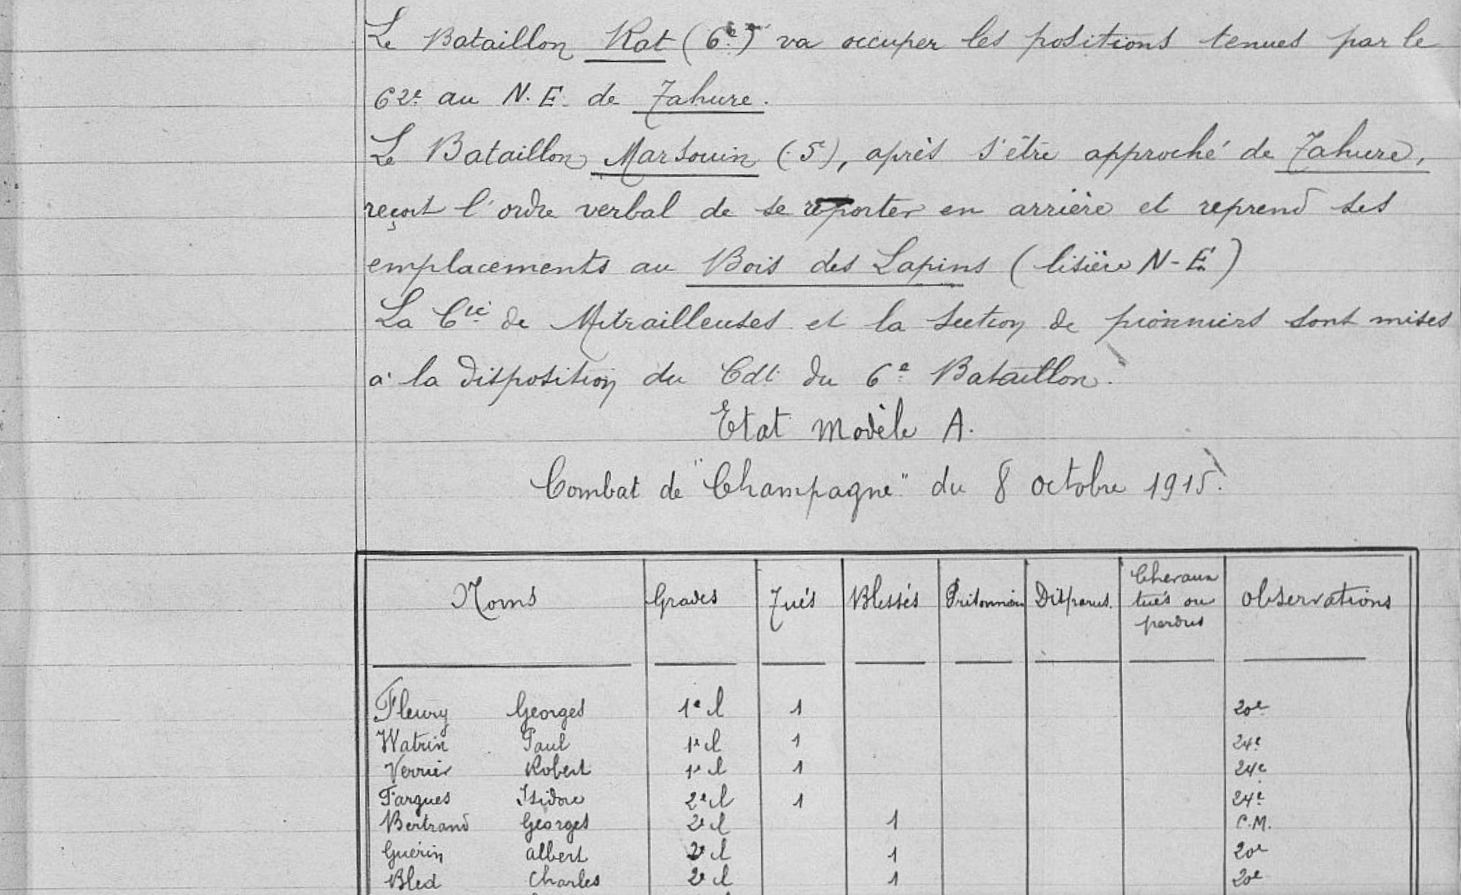 Le Bataillon Rat (6e) va occuper les positions tenues par le
62e au N.E. de Tahure.
Le Bataillon Marsouin (5e), après s'être approché de Tahure,
reçoit l'ordre verbal de se reporter en arrière et reprend ses
emplacements au Bois des Lapins (lisière N-E)
La Cie de Mitrailleuses et la section de pionniers sont mises
à la disposition du Cdt du 6e Bataillon.
Etat modèle A.
Combat de "Champagne" du 8 octobre 1915.
Noms Grades Tués Blessés Prisonniers Disparus Chevaux tués ou perdus Observations
Fleury Georges 1e cl 1 20e
Watrin Paul 1e cl 1 24e
Verrier Robert 1e cl 1 24e
Fargues Isidore 2e cl 1 24e
Bertrand Georges 2e cl 1 C.M.
Guérin Albert 2e cl 1 20e
Bled Charles 2e cl 1 20e